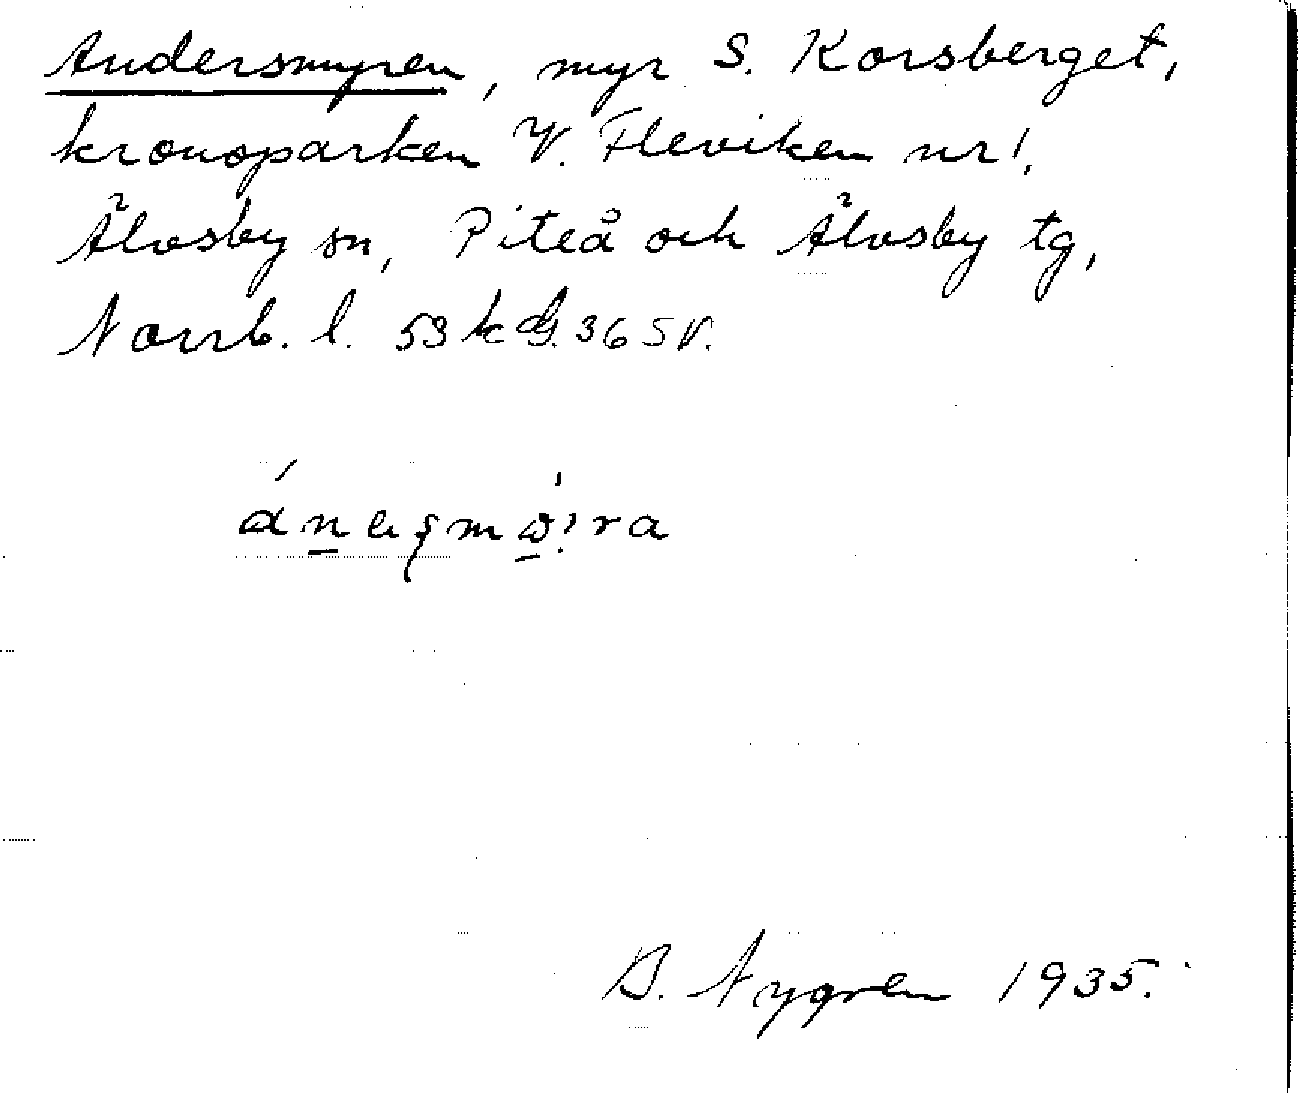 Andersmyren, myr S. Korsberget,
kronoparken V. Fleviken nr 1,
Älvsby sn, Piteå och Älvsby tg,
Norrb. l. 53 36 SV.
B. Nygren 1935.